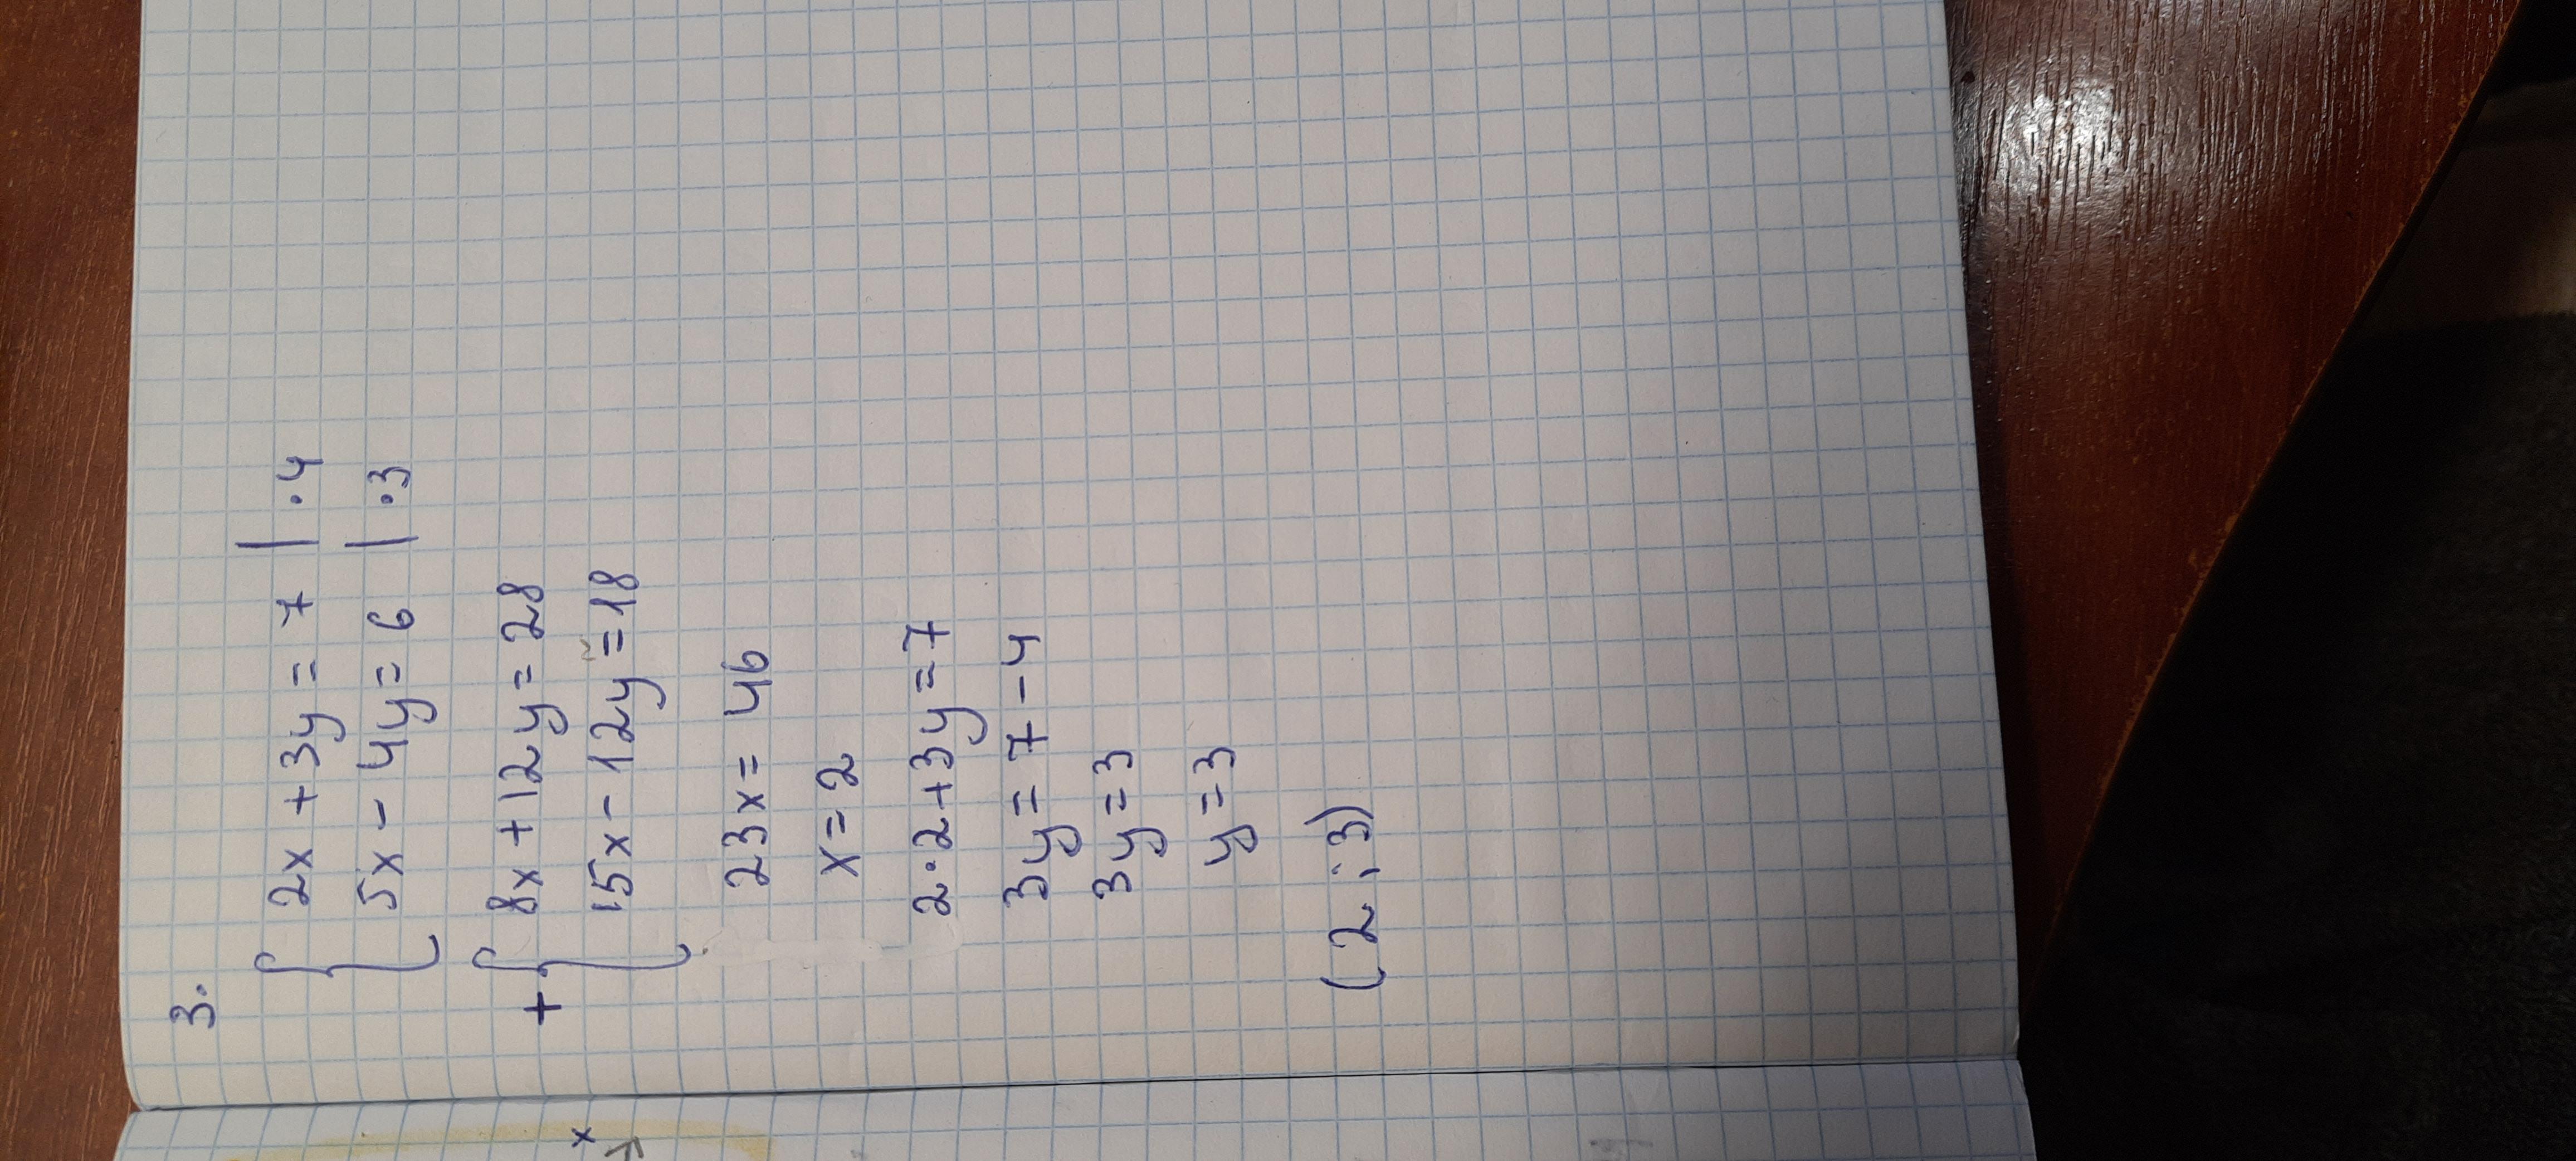 3.
{ 2x + 3y = 7 | · 4
5x - 4y = 6 | · 3
+ { 8x + 12y = 28
15x - 12y = 18
23x = 46
x = 2
2 · 2 + 3y = 7
3y = 7 - 4
3y = 3
y = 3
(2 ; 3)
x